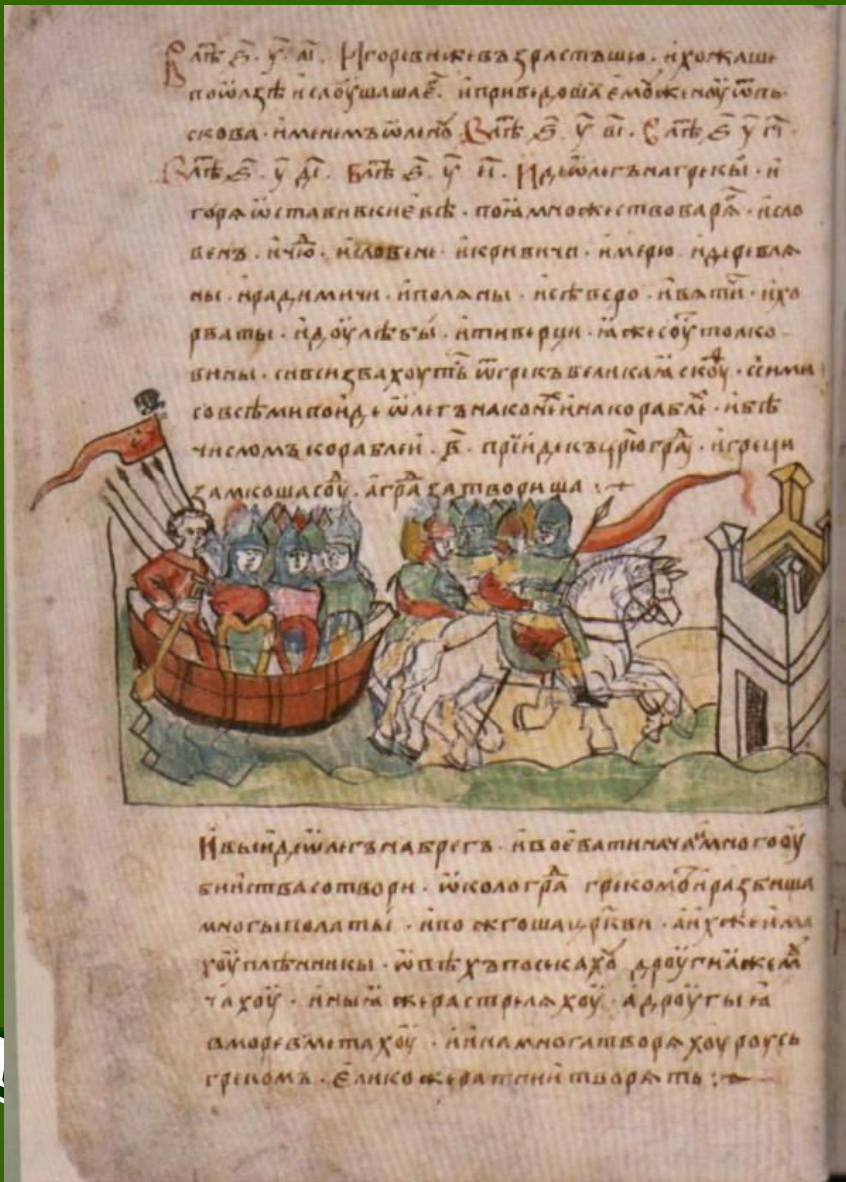 В лѣⷮ ҂ѕ҃. у҃. а҃і. Игореви же възрастъшю. и хожаше
по ѡлзѣ и слоушаша еⷢ. и приведоша ємоу женоу ѿ пь
скова. именемъ ѡлену. В лѣⷮ ҂ѕ҃. у҃ в҃і. В лѣⷮ ҂ѕ҃ у҃ г҃і.
В лѣⷮ ҂ѕ҃. у҃ д҃і. В лѣⷮ ҂ѕ҃. у҃ е҃і. Иде ѡлегъ на грекы. и
горя ѡставив киевѣ. поꙗ множество варѧⷢ. и сло
венъ. и чюⷣ. и словене. и кривичи. и мерю. и деревлѧ
ны. и радимичи. и полѧны. и сѣверо. и вѧтиⷱ. и хо
рваты. и доулѣбы. и тиверци. ꙗже соуⷮ толко
вины. си вси звахоутьⷭ ѿ грекъ великаꙗ скоуⷴ. с сими
со всѣми поиде ѡлегъ на конеⷯ и на кораблеⷯ. и бѣ
числомъ кораблеи. в҃. прїиде къ црⷭ҇юграⷣу. и греци
замкоша соуⷣ. а граⷣ затвориша :~
И выиде ѡлегъ на брегъ. и воевати начаⷮ и много оу
биства сотвори. ѡколо граⷣ грекомъ. и разбиша
многы полаты. и пожгоша црⷪ҇кви. а ихже има
хоуⷮ плѣнникы. ѡвѣхъ посекахоуⷮ дроугиꙗ же моуⷱ
чахоуⷮ. иныꙗ же растрелѧхоуⷮ. а дроугыꙗ
в море вметахоуⷮ. и ина многа творѧхоу роусь
грекомъ. єлико же ратнии творѧть :~